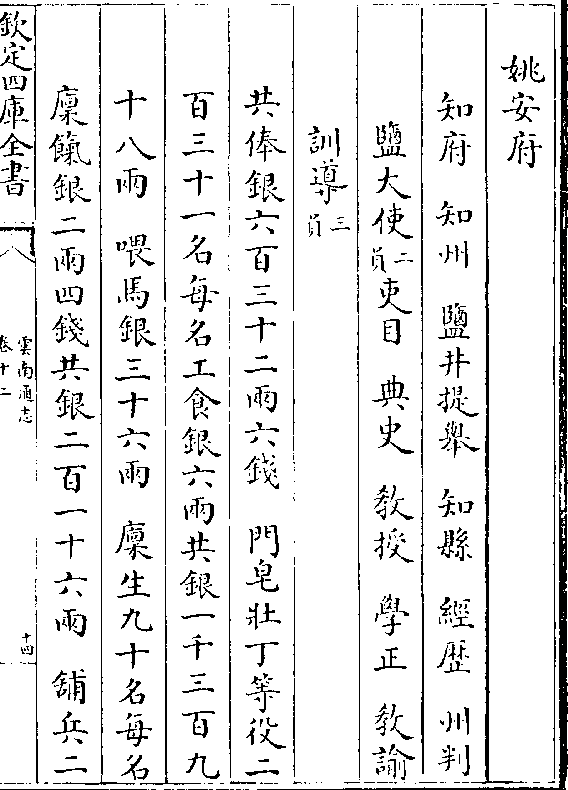 姚安府
知府　知州　鹽井提舉　知縣　經歷　州判
鹽大使二員吏目　典史　教授　學正　教諭
訓導三員
共俸銀六百三十二兩六錢　門皂壯丁等役二
百三十一名每名工食銀六兩共銀一千三百九
十八兩　喂馬銀三十六兩　廩生九十名每名
廩餼銀二兩四錢共銀二百一十六兩　舖兵二
欽定四庫全書
雲南通志
卷十二
十四